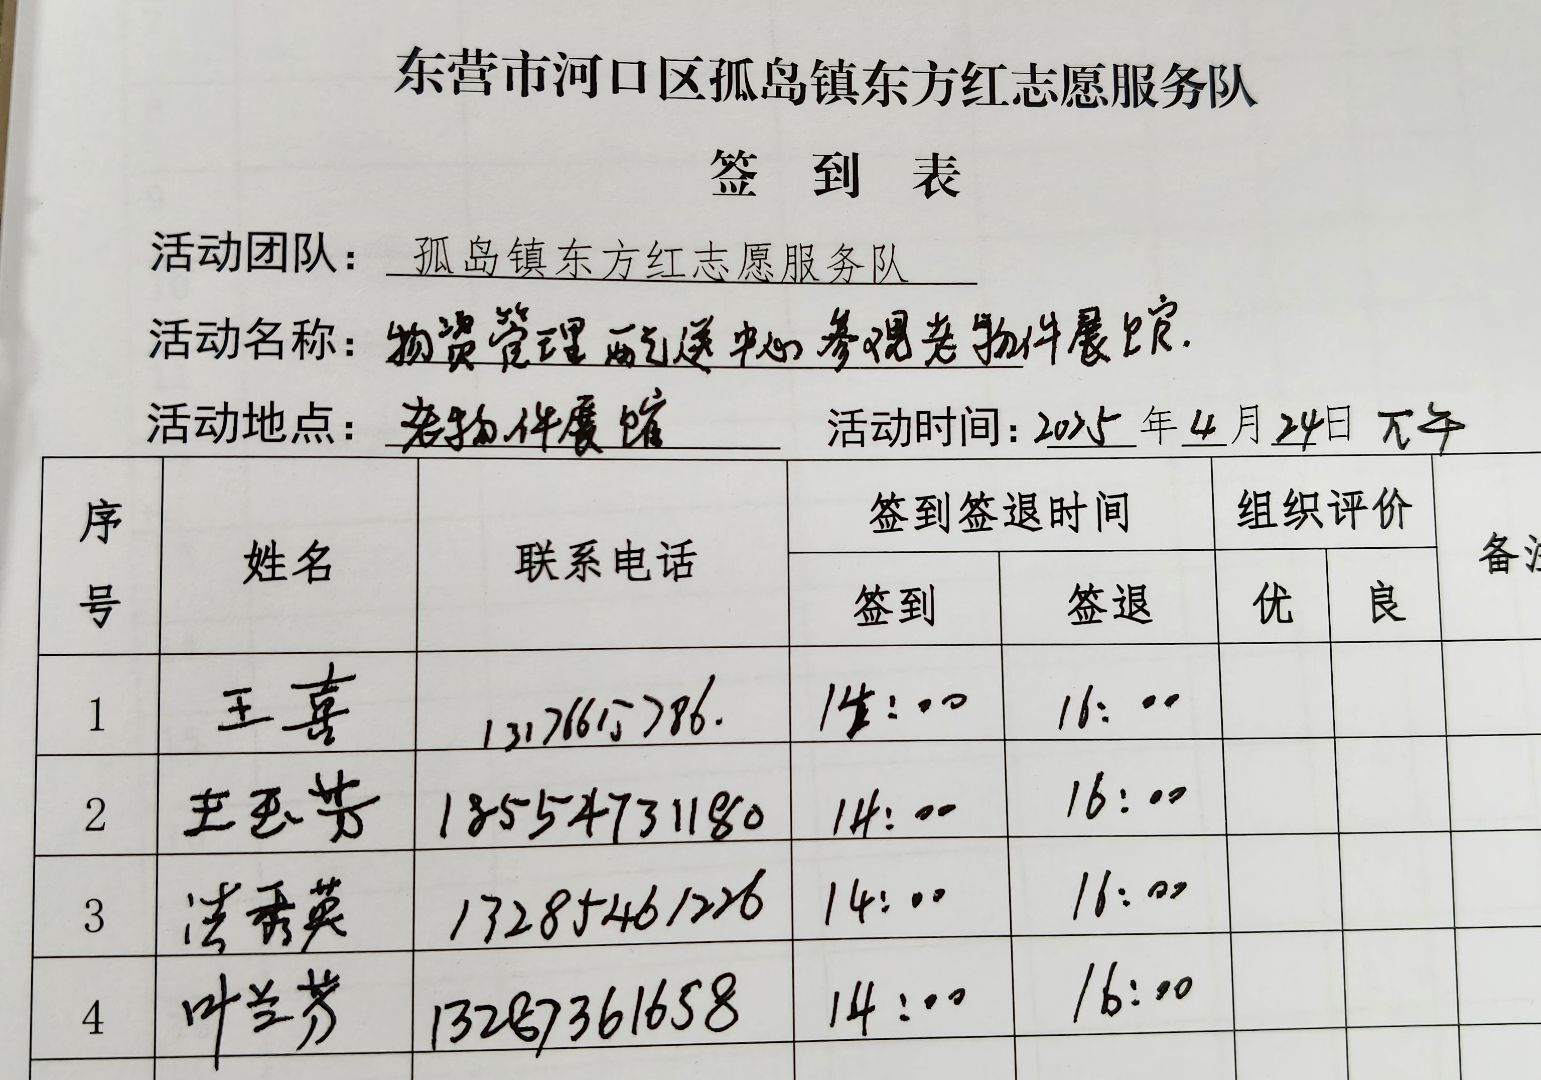 东营市河口区孤岛镇东方红志愿服务队
签到表
活动团队：孤岛镇东方红志愿服务队
活动名称：物资管理配送中心参观老物件展馆.
活动地点：老物件展馆 活动时间：2025年4月24日 下午
序号 姓名 联系电话 签到签退时间 组织评价 备注
签到 签退 优 良
1 王喜 13176615786. 14:00 16:00
2 王玉芳 18554731180 14:00 16:00
3 秀英 13285461226 14:00 16:00
4 叶兰芳 13287361658 14:00 16:00